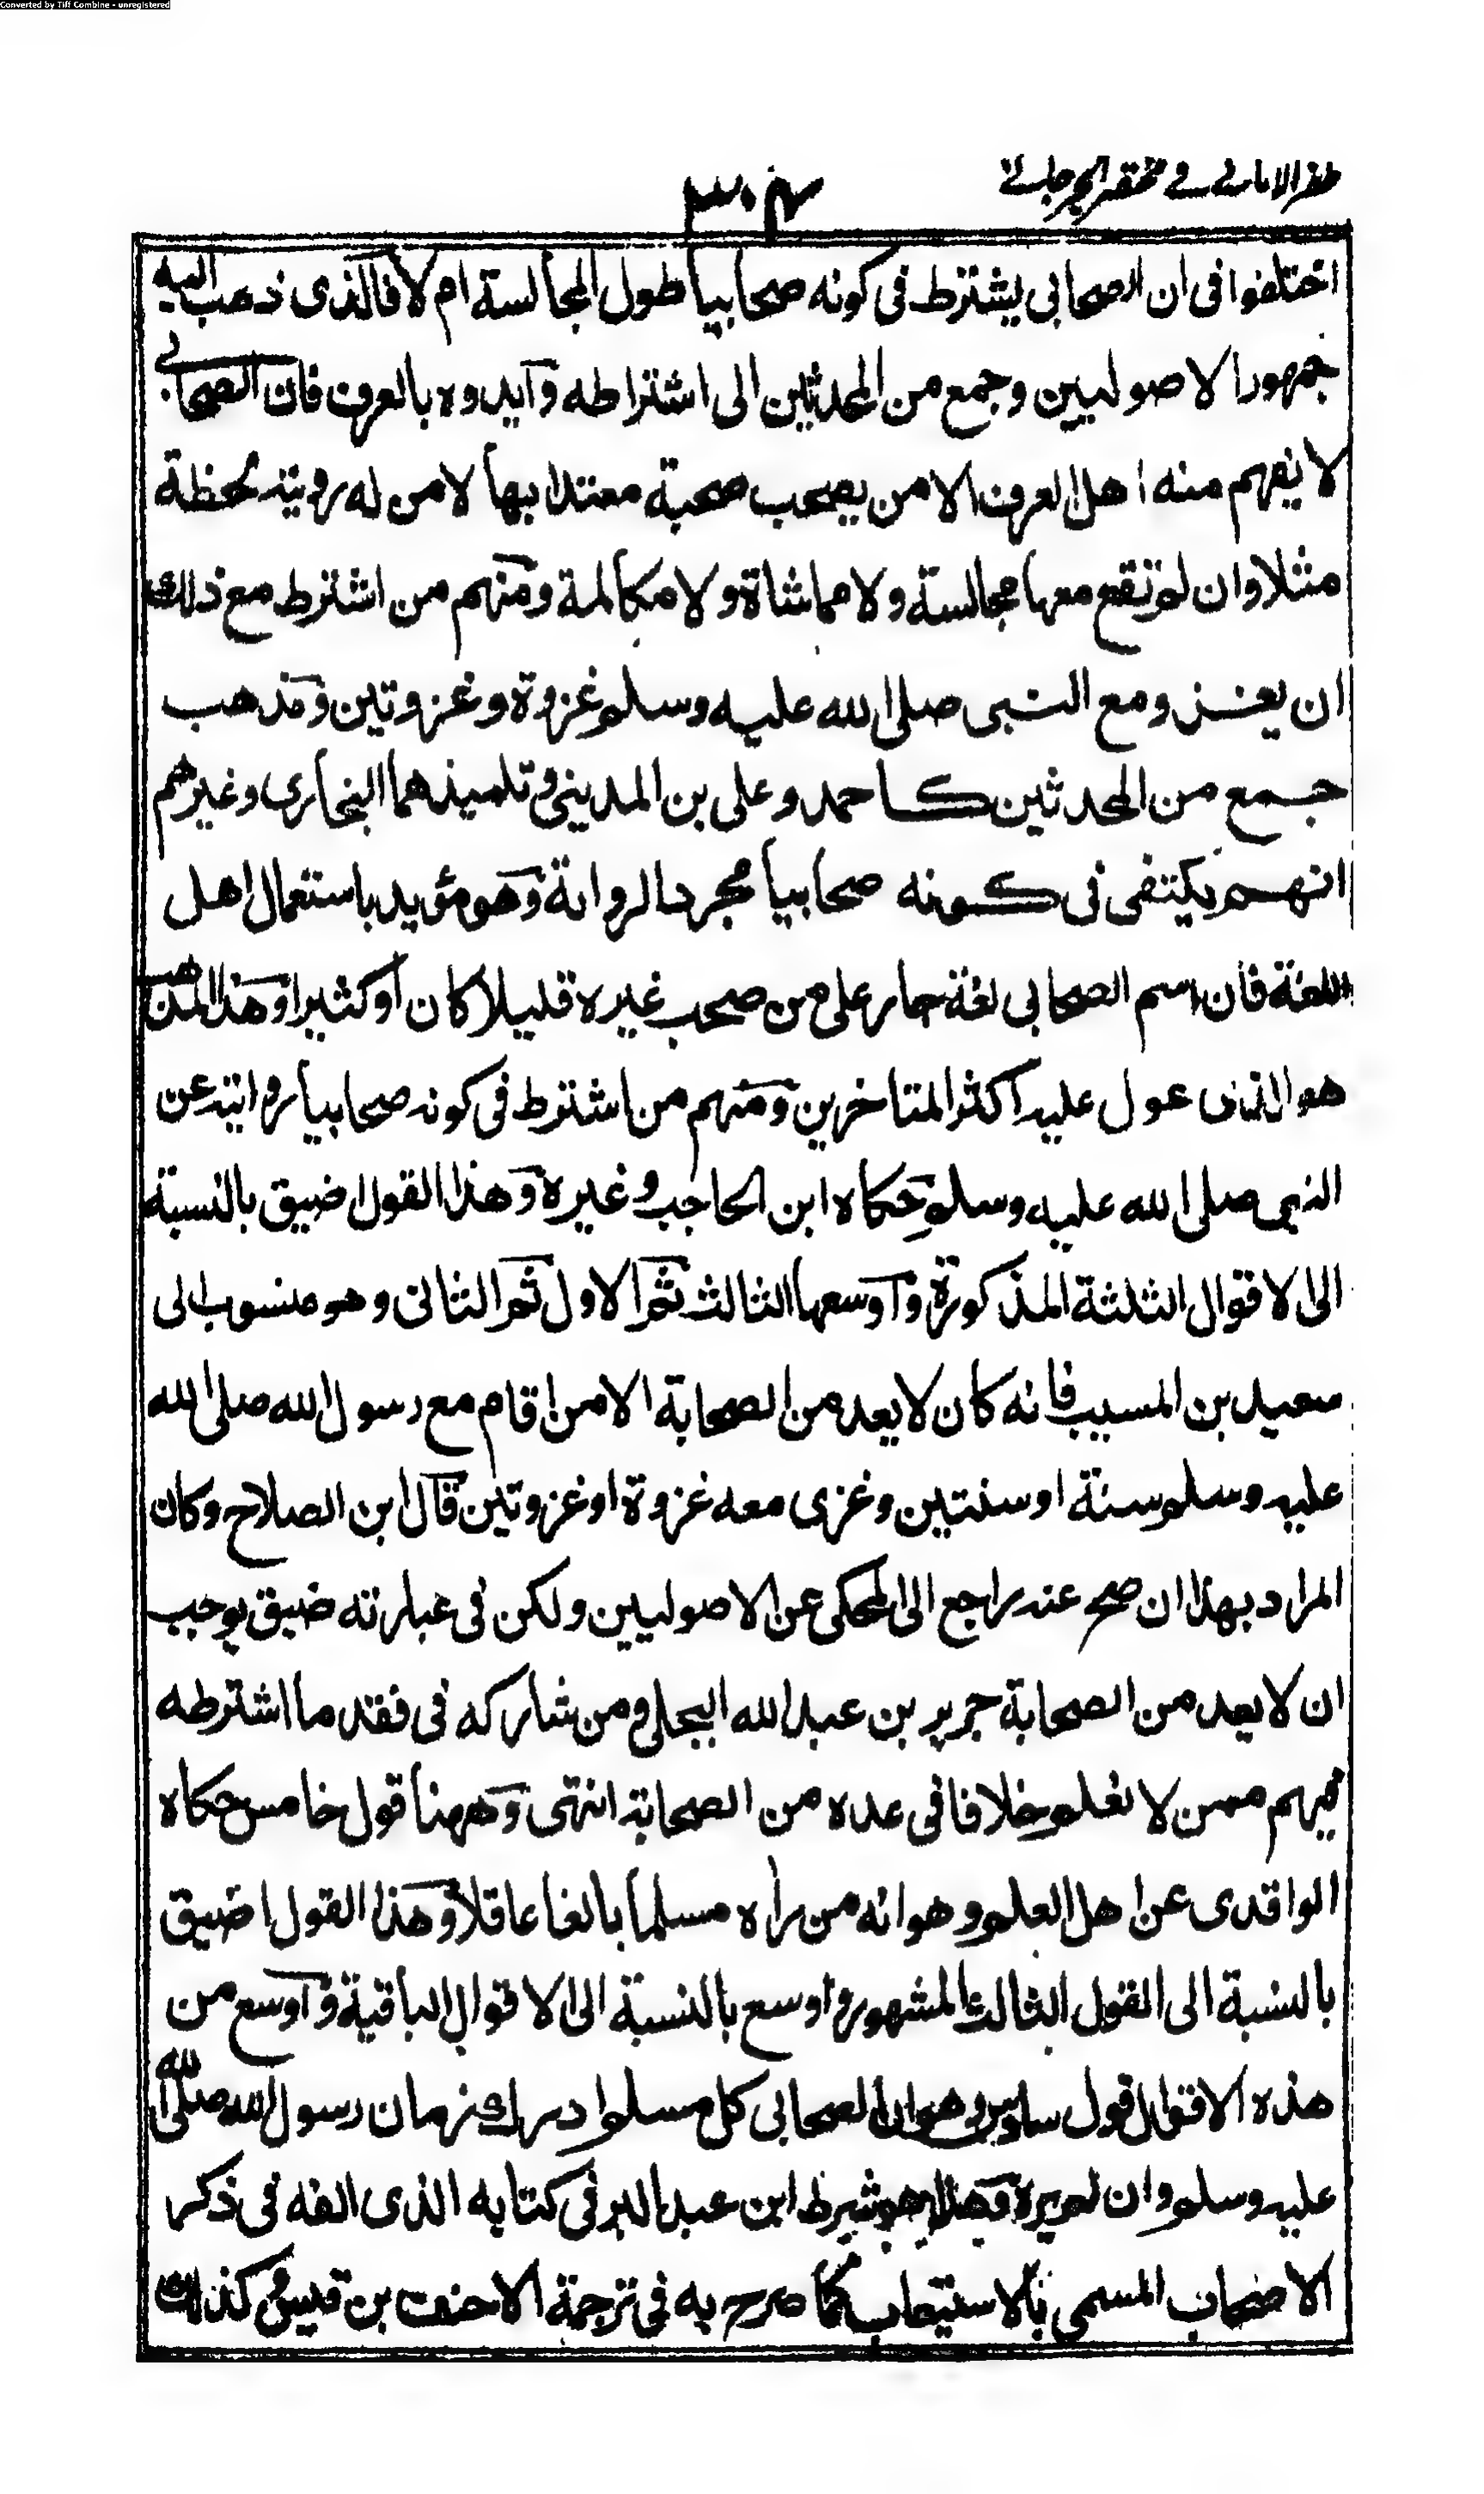 Converted by Tiff Combine - unregistered
ظفر الامانى فى مختصر الجرجانى
٣٠٤
اختلفوا فى ان الصحابى يشترط فى كونه صحابيا طول المجالسة ام لا فالذى ذهب اليه
جمهور الاصوليين وجمع من المحدثين الى اشتراطه وايدوه بالعرف فان الصحابى
لا يفهم منه اهل العرف الا من يصحب صحبة معتدا بها لا من له روية لحظة
مثلا وان لم تقع معها مجالسة ولا مماشاة ولا مكالمة ومنهم من اشترط مع ذلك
ان يغزو مع النبى صلى الله عليه وسلم غزوة وغزوتين ومذهب
جمع من المحدثين كاحمد وعلى بن المدينى وتلميذهما البخارى وغيرهم
انهم يكتفى فى كونه صحابيا مجرد الرواية وهو مؤيد باستعمال اهل
اللغة فان اسم الصحابى لغة جار على من صحب غيره قليلا كان او كثيرا وهذا المذهب
هو الذى عول عليه اكثر المتاخرين ومنهم من اشترط فى كونه صحابيا روايته عن
النبى صلى الله عليه وسلم حكاه ابن الحاجب وغيره وهذا القول اضيق بالنسبة
الى الاقوال الثلثة المذكورة واوسعها الثالث ثم الاول ثم الثانى وهو منسوب الى
سعيد بن المسيب فانه كان لا يعد من الصحابة الا من اقام مع رسول الله صلى الله
عليه وسلم سنة او سنتين وغزى معه غزوة او غزوتين قال ابن الصلاح وكان
المراد بهذا ان صح عنه راجع الى المحكى عن الاصوليين ولكن فى عبارته ضيق يوجب
ان لا يعد من الصحابة جرير بن عبد الله البجلى ومن شاركه فى فقد ما اشترطه
فيهم ممن لا نعلم خلافا فى عده من الصحابة انتهى وههنا قول خامس حكاه
الواقدى عن اهل العلم وهو انه من راه مسلما بالغا عاقلا وهذا القول اضيق
بالنسبة الى القول الثالث المشهور واوسع بالنسبة الى الاقوال الباقية واوسع من
هذه الاقوال قول سادس وهو ان الصحابى كل مسلم ادرك زمان رسول الله صلى الله
عليه وسلم وان لم يره وهذا هو شرط ابن عبد البر فى كتابه الذى الفه فى ذكر
الاصحاب المسمى بالاستيعاب كما صرح به فى ترجمة الاحنف بن قيس وكذلك